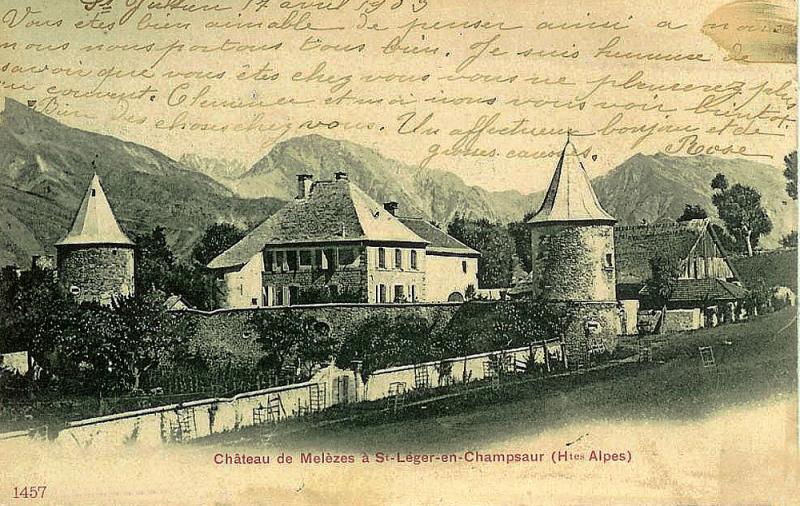 St Julien 17 avril 1903
Vous êtes bien aimable de penser ainsi a nous
nous nous portons tous bien. Je suis heureuse de
savoir que vous êtes chez vous vous ne pleurerez plus
au couvent. Clemence et moi nous vous voir bientot,
bien des choses chez vous. Un affectueux bonjour et de
grosses caresses. Rose
Château de Melèzes à St-Léger-en-Champsaur (Htes Alpes)
1457